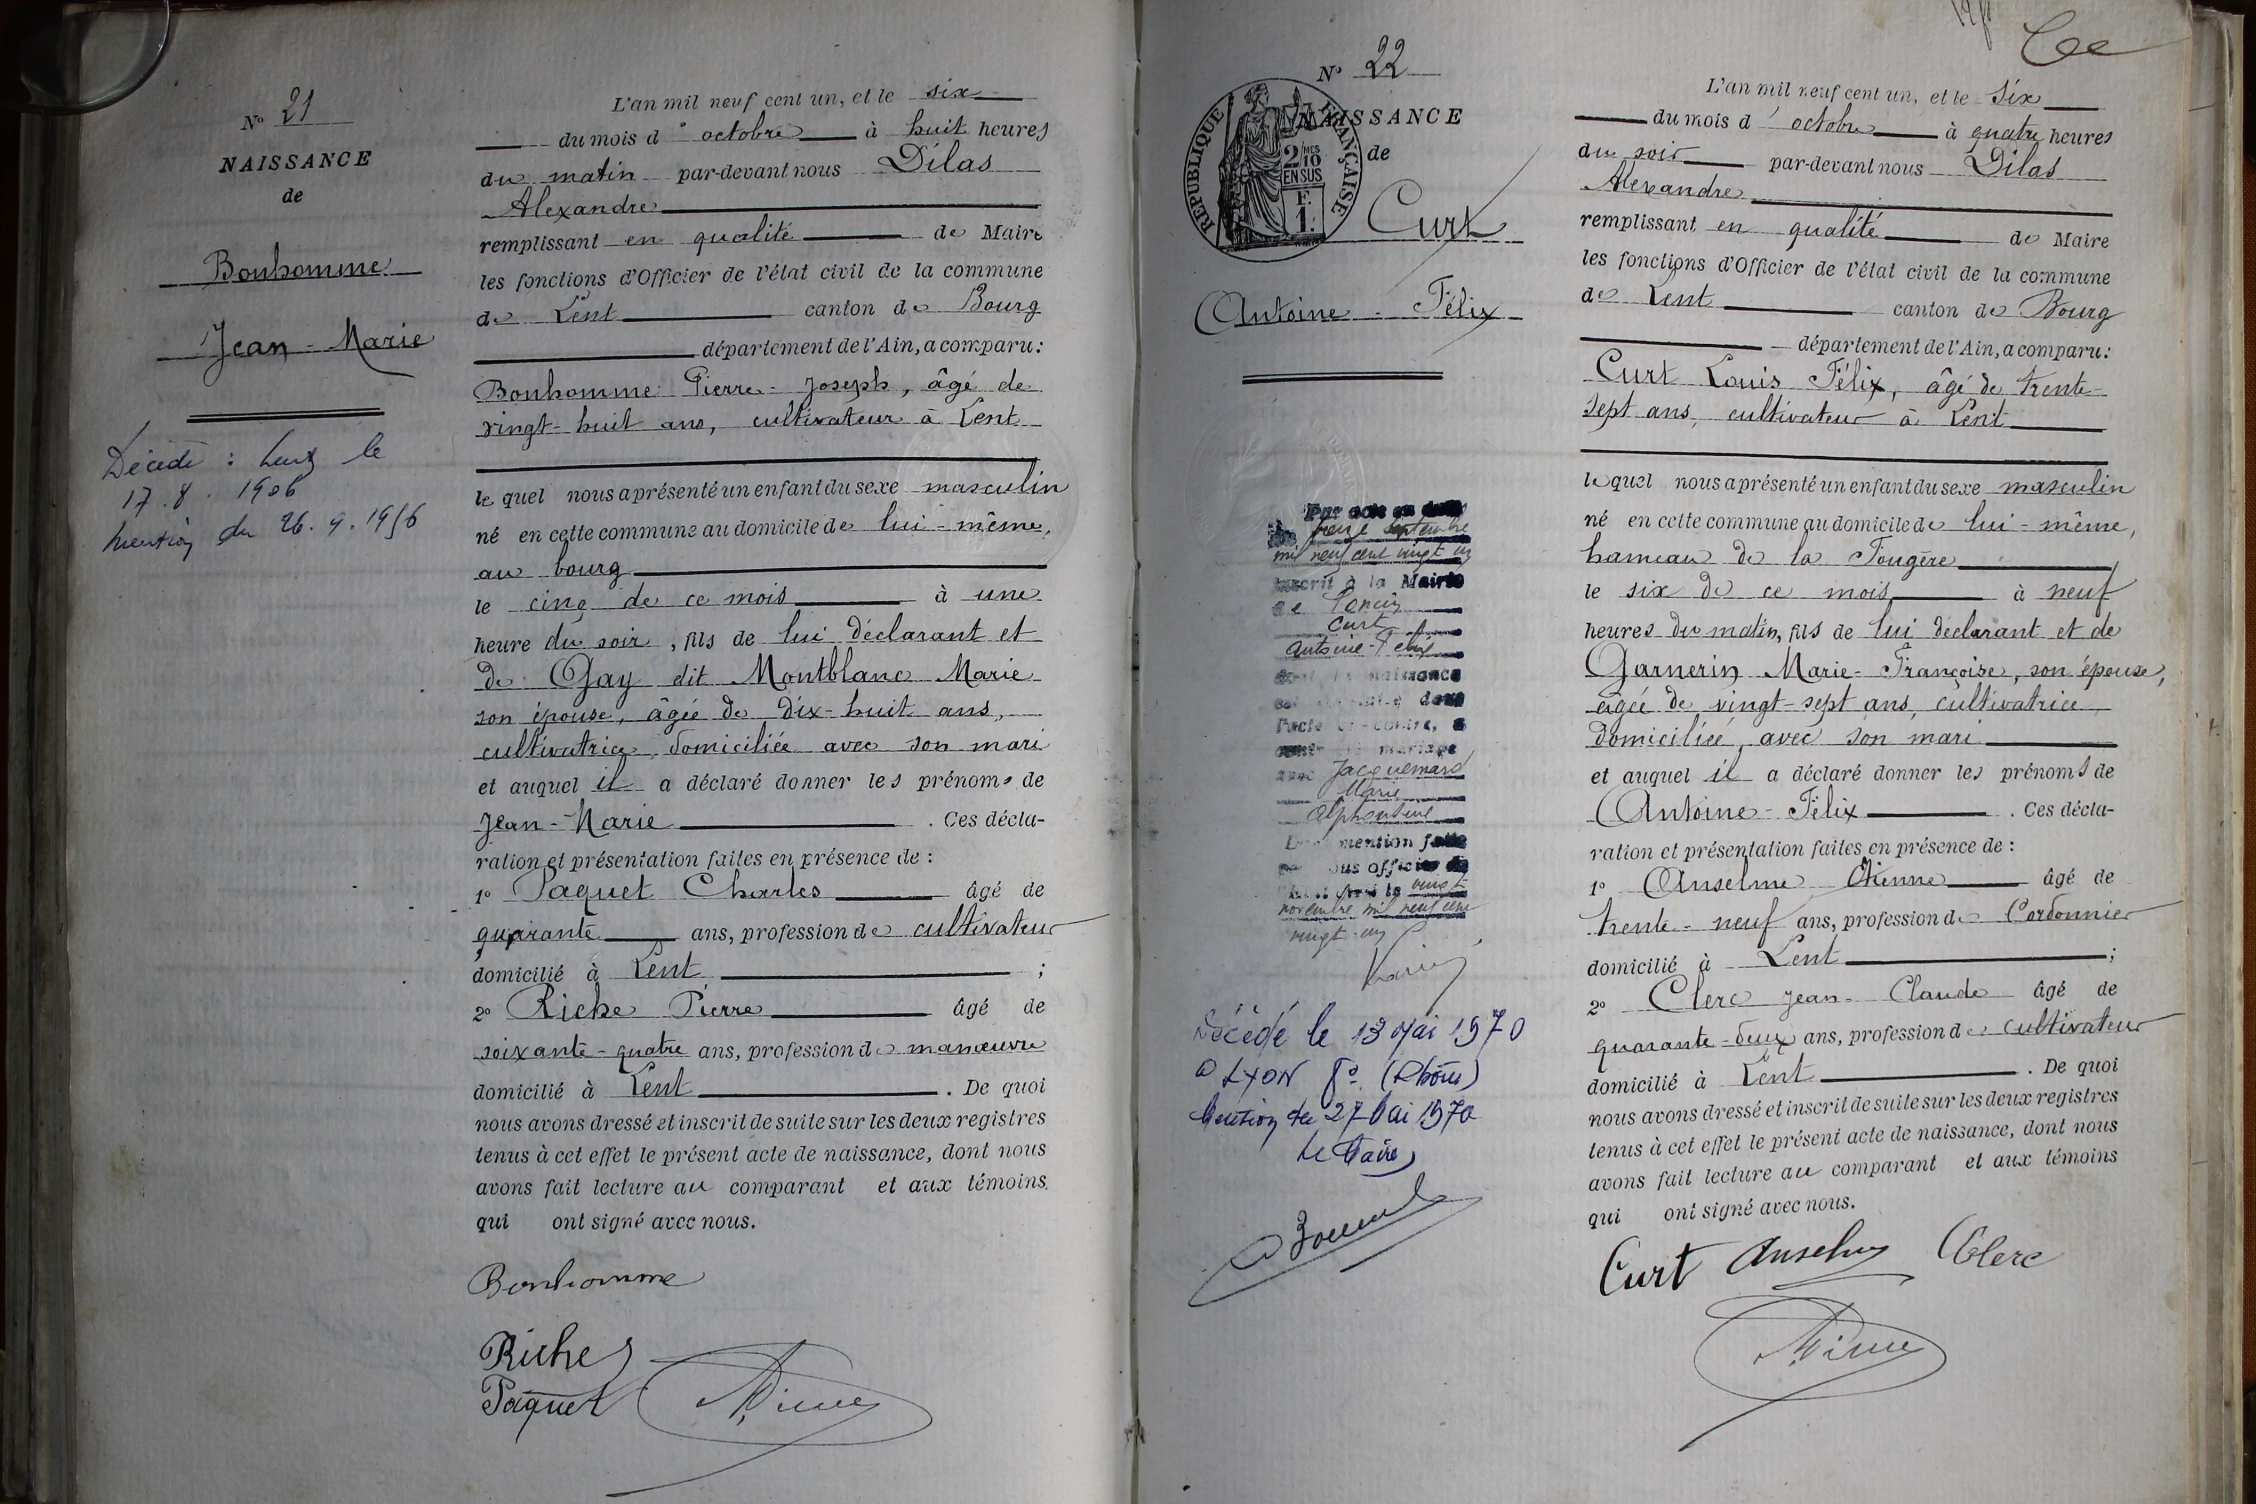 N° 21
NAISSANCE
de
Bonhomme
Jean-Marie
Décédé : Lent le
17.8.1956
mention du 26.9.1956
L'an mil neuf cent un, et le six
du mois d'octobre à huit heures
du matin par-devant nous Dilas
Alexandre
remplissant en qualité de Maire
les fonctions d'Officier de l'état civil de la commune
de Lent canton de Bourg
département de l'Ain, a comparu:
Bonhomme Pierre-Joseph, âgé de
vingt-huit ans, cultivateur à Lent
lequel nous a présenté un enfant du sexe masculin
né en cette commune au domicile de lui-même,
au bourg
le cinq de ce mois à une
heure du soir, fils de lui déclarant et
de Gay dit Montblanc Marie
son épouse, âgée de dix-huit ans,
cultivatrice, domiciliée avec son mari
et auquel il a déclaré donner les prénoms de
Jean-Marie. Ces décla-
ration et présentation faites en présence de :
1° Paquet Charles âgé de
quarante ans, profession de cultivateur
domicilié à Lent ;
2° Riche Pierre âgé de
soixante-quatre ans, profession de manœuvre
domicilié à Lent. De quoi
nous avons dressé et inscrit de suite sur les deux registres
tenus à cet effet le présent acte de naissance, dont nous
avons fait lecture au comparant et aux témoins
qui ont signé avec nous.
Bonhomme
Riche
Paquet
N° 22
NAISSANCE
de
RÉPUBLIQUE FRANÇAISE
2/10 MES
EN SUS
F.
1.
Curt
Antoine-Félix
Par acte en date
treize septembre
mil neuf cent vingt un
inscrit à la Mairie
de Poncin
Curt
Antoine-Félix
dont la naissance
est constatée dans
l'acte ci-contre, a
contracté mariage
avec Jacquemard
Marie
Alphonsine
mention faite
par nous officier de
l'état civil le vingt
novembre mil neuf cent
vingt-un
Décédé le 13 Mai 1970
à LYON 8e (Rhône)
Mention du 27 Mai 1970
Le Maire,
L'an mil neuf cent un, et le six
du mois d'octobre à quatre heures
du soir par-devant nous Dilas
Alexandre
remplissant en qualité de Maire
les fonctions d'Officier de l'état civil de la commune
de Lent canton de Bourg
département de l'Ain, a comparu:
Curt Louis Félix, âgé de trente-
sept ans, cultivateur à Lent
lequel nous a présenté un enfant du sexe masculin
né en cette commune au domicile de lui-même,
hameau de la Fougère
le six de ce mois à neuf
heures du matin, fils de lui déclarant et de
Garnerin Marie-Françoise, son épouse,
âgée de vingt-sept ans, cultivatrice
domiciliée, avec son mari
et auquel il a déclaré donner les prénoms de
Antoine-Félix. Ces décla-
ration et présentation faites en présence de :
1° Anselme Etienne âgé de
trente-neuf ans, profession de Cordonnier
domicilié à Lent ;
2° Clerc Jean-Claude âgé de
quarante-deux ans, profession de cultivateur
domicilié à Lent. De quoi
nous avons dressé et inscrit de suite sur les deux registres
tenus à cet effet le présent acte de naissance, dont nous
avons fait lecture au comparant et aux témoins
qui ont signé avec nous.
Curt Anselme Clerc